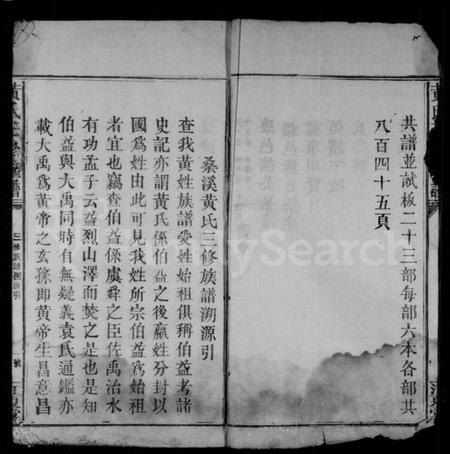 共譜並試板二十三部每部六本各部共
八百四十五頁
桑溪黃氏三修族譜溯源引
查我黃姓族譜受姓始祖俱稱伯益考諸
史記亦謂黃氏係伯益之後嬴姓分封以
國爲姓由此可見我姓所宗伯益爲始祖
者宜也竊查伯益係虞舜之臣佐禹治水
有功孟子云益烈山澤而焚之是也是知
伯益與大禹同時自無疑義袁氏通鑑亦
載大禹爲黃帝之玄孫即黃帝生昌意昌
三修族譜溯源引
MySearch